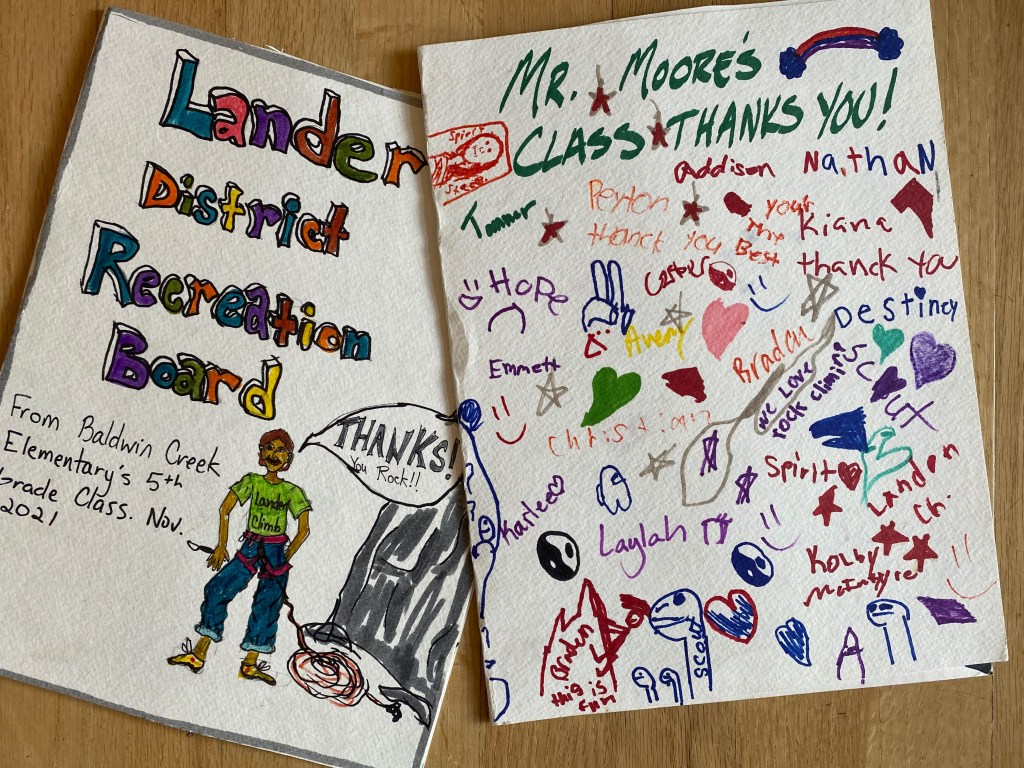 Lander
District
Recreation
Board
From Baldwin Creek
Elementary's 5th
Grade Class. Nov.
2021
THANKS!
You Rock!!
Lander
Climb
MR. MOORE'S
CLASS THANKS YOU!
Spirit
addison
Nathan
Peyton
thanck you
your
the
Best
Kiana
thanck you
Hope
Avery
Braden
Destiney
Emmett
we love
rock climing
Christian
Spirit
Landen
Ch.
Karlee
Laylah
Kolby
McIntyre
Braden
this is
fun
Scott
A